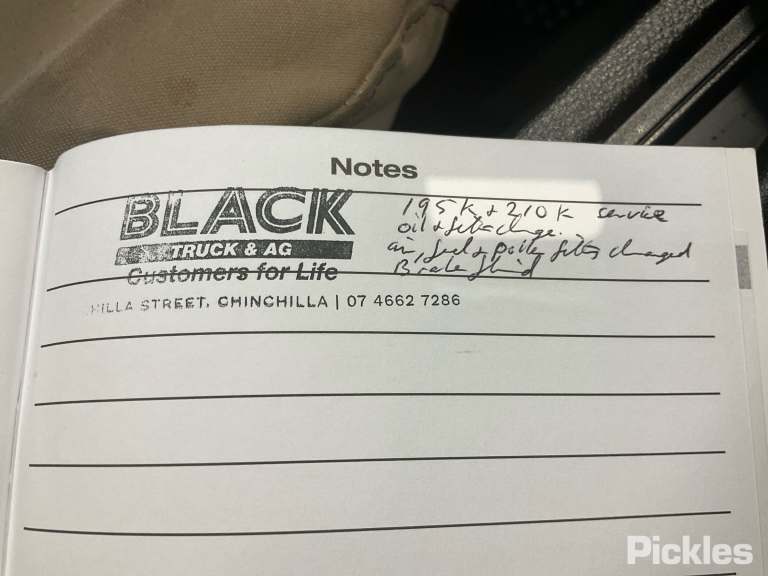 Notes
BLACK
TRUCK & AG
Customers for Life
HILLA STREET, CHINCHILLA | 07 4662 7286
195K + 210K service
oil + filter change.
air, fuel + pollen filters changed
Brake fluid
Pickles